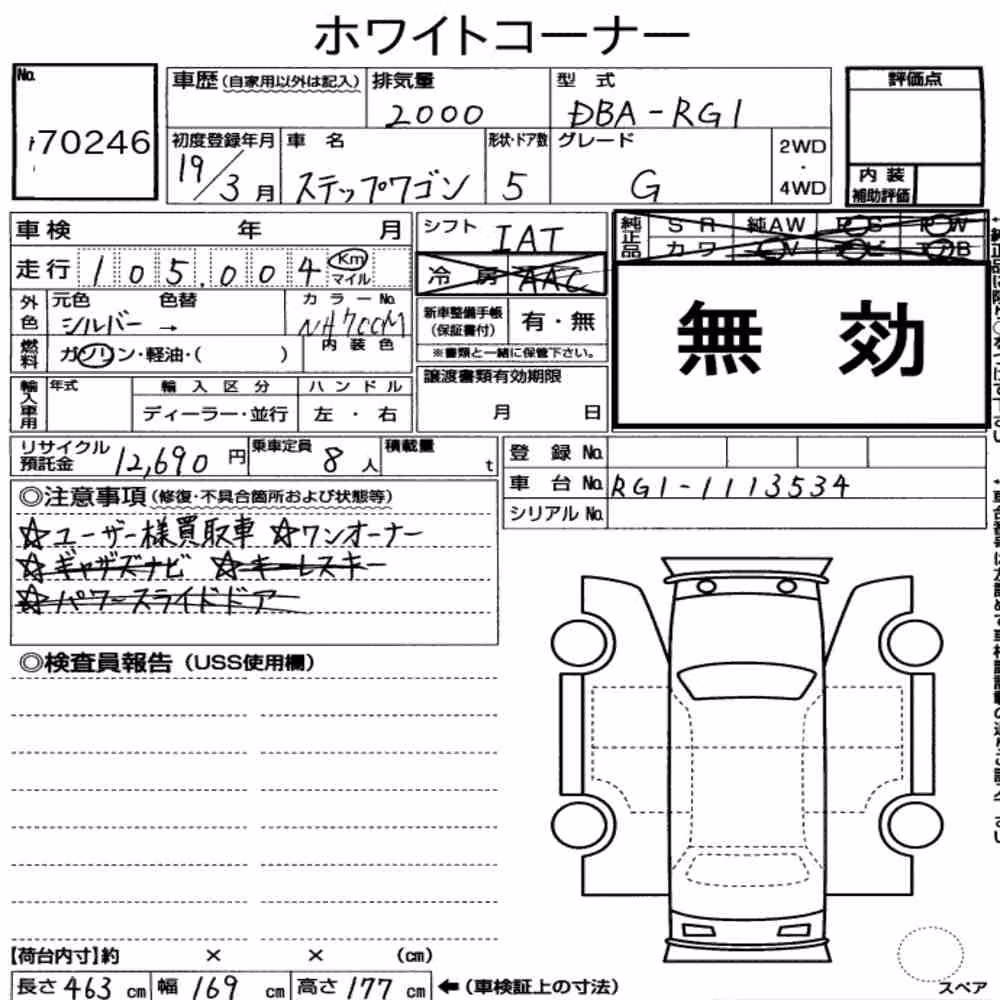 ホワイトコーナー
No.
70246
車歴(自家用以外は記入)
排気量
2000
型式
DBA-RG1
評価点
初度登録年月
19/3月
車名
ステップワゴン
形状・ドア数
5
グレード
G
2WD
・
4WD
内装
補助評価
車検 年 月
走行 105,004 Km
マイル
シフト IAT
冷房 AAC
純正品
SR 純AW PS PW
カワ
無 効
外色
元色 色替
シルバー →
カラーNo.
NH700M
燃料
ガソリン・軽油・( )
内装色
新車整備手帳
(保証書付)
有・無
※書類と一緒に保管下さい。
輸入車用
年式
輸入区分
ディーラー・並行
ハンドル
左・右
譲渡書類有効期限
月 日
リサイクル
預託金
12,690円
乗車定員
8人
積載量
t
登録No.
車台No. RG1-1113534
シリアルNo.
◎注意事項(修復・不具合箇所および状態等)
☆ユーザー様買取車 ☆ワンオーナー
☆ギャザズナビ ☆キーレスキー
☆パワースライドドアー
◎検査員報告(USS使用欄)
【荷台内寸】約 × × (cm)
長さ463cm 幅169cm 高さ177cm ←(車検証上の寸法)
スペア